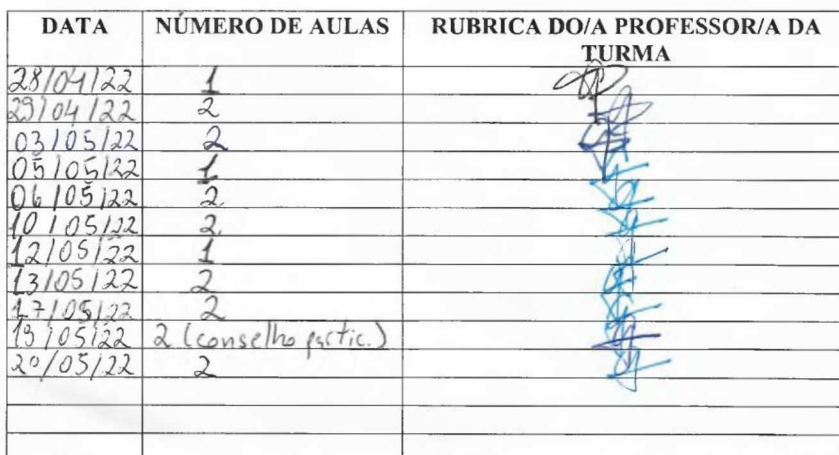 DATA NÚMERO DE AULAS RUBRICA DO/A PROFESSOR/A DA TURMA
28/04/22 1
29/04/22 2
03/05/22 2
05/05/22 1
06/05/22 2
10/05/22 2
12/05/22 1
13/05/22 2
17/05/22 2
19/05/22 2 (conselho partic.)
20/05/22 2